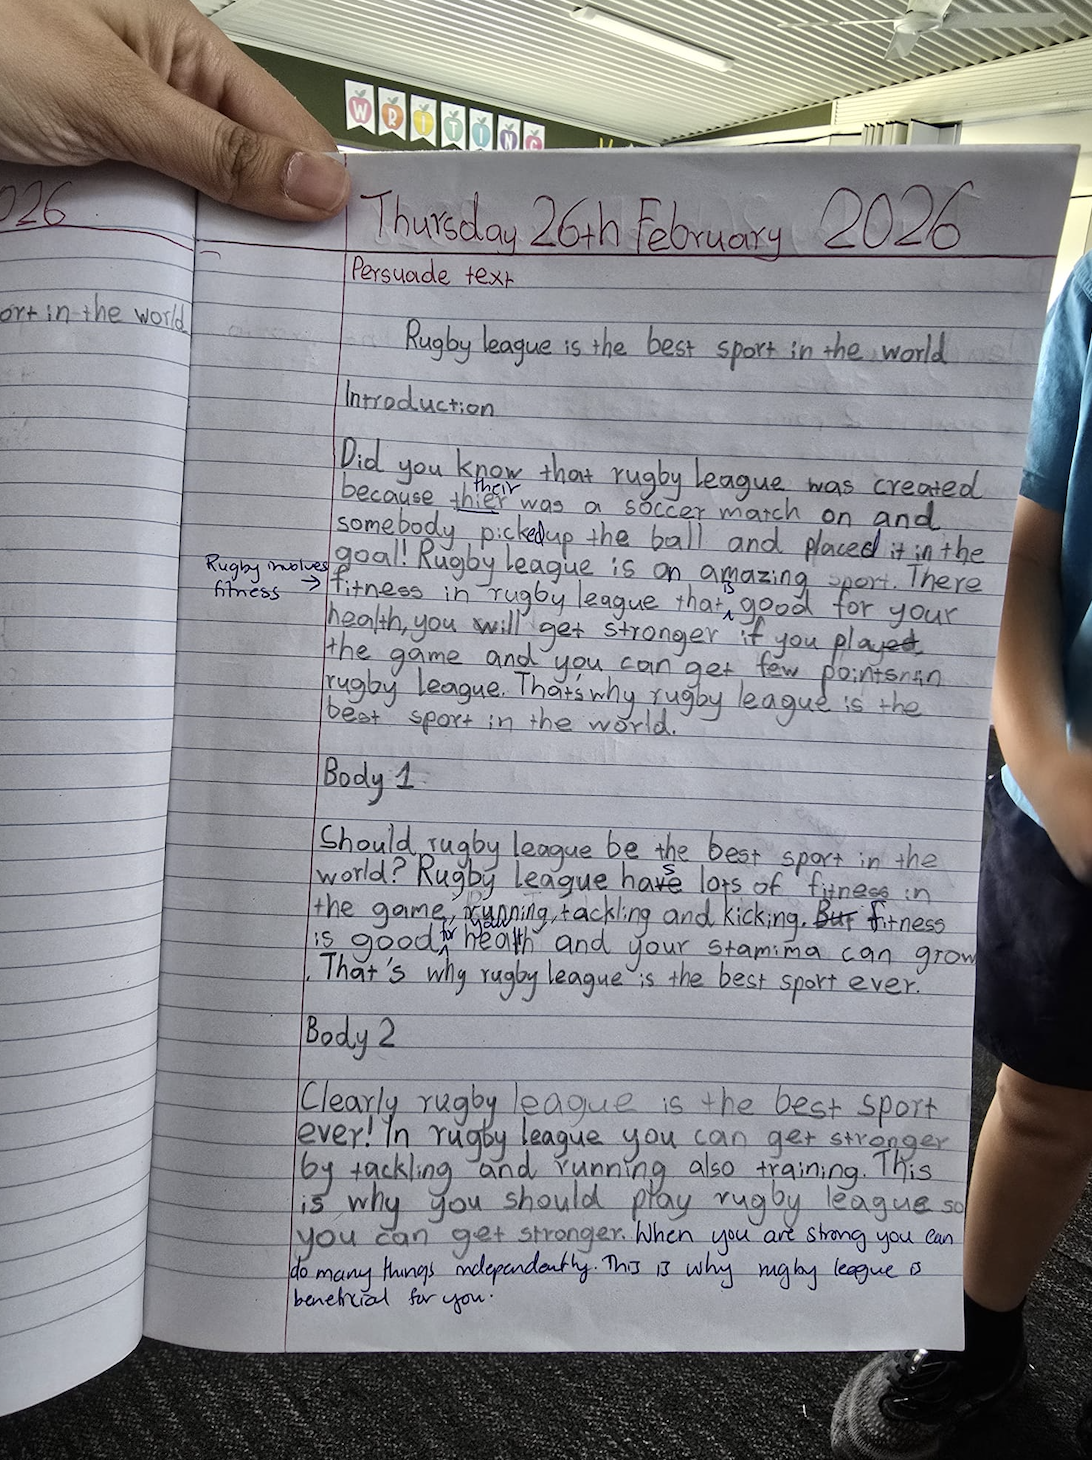 WRITING
026
Thursday 26th February 2026
Persuade text
ort in the world
Rugby league is the best sport in the world
Introduction
Did you know that rugby league was created
their
because thier was a soccer match on and
somebody pickedup the ball and placed it in the
goal! Rugby league is an amazing sport. There
Rugby involves
fitness →
is
fitness in rugby league that ^ good for your
health, you will get stronger if you played
the game and you can get few points in
rugby league. That's why rugby league is the
best sport in the world.
Body 1
Should rugby league be the best sport in the
s
world? Rugby League have lots of fitness in
the game, running, tackling and kicking. But fitness
for your
is good ^ health and your stamima can grow
. That's why rugby league is the best sport ever.
Body 2
Clearly rugby league is the best sport
ever! In rugby league you can get stronger
by tackling and running also training. This
is why you should play rugby league so
you can get stronger. When you are strong you can
do many things independently. This is why rugby league is
beneficial for you.